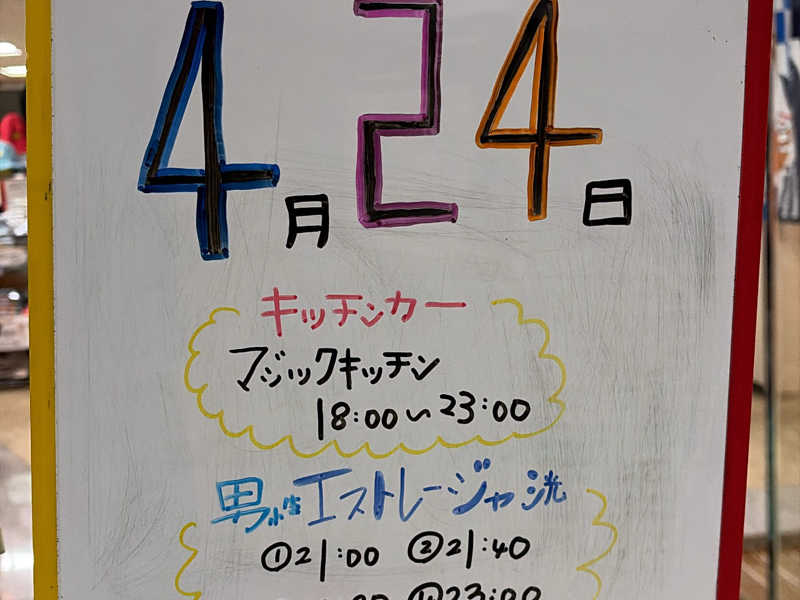 4月24日
キッチンカー
マジックキッチン
18:00~23:00
男性エストレージャ洸
①21:00 ②21:40
④23:00